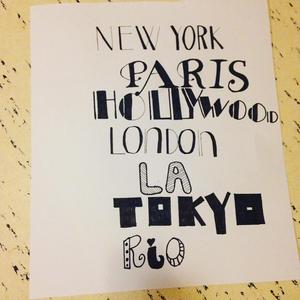 NEW YORK
PARIS
HOLLYWOOD
LONDON
LA
TOKYO
RiO